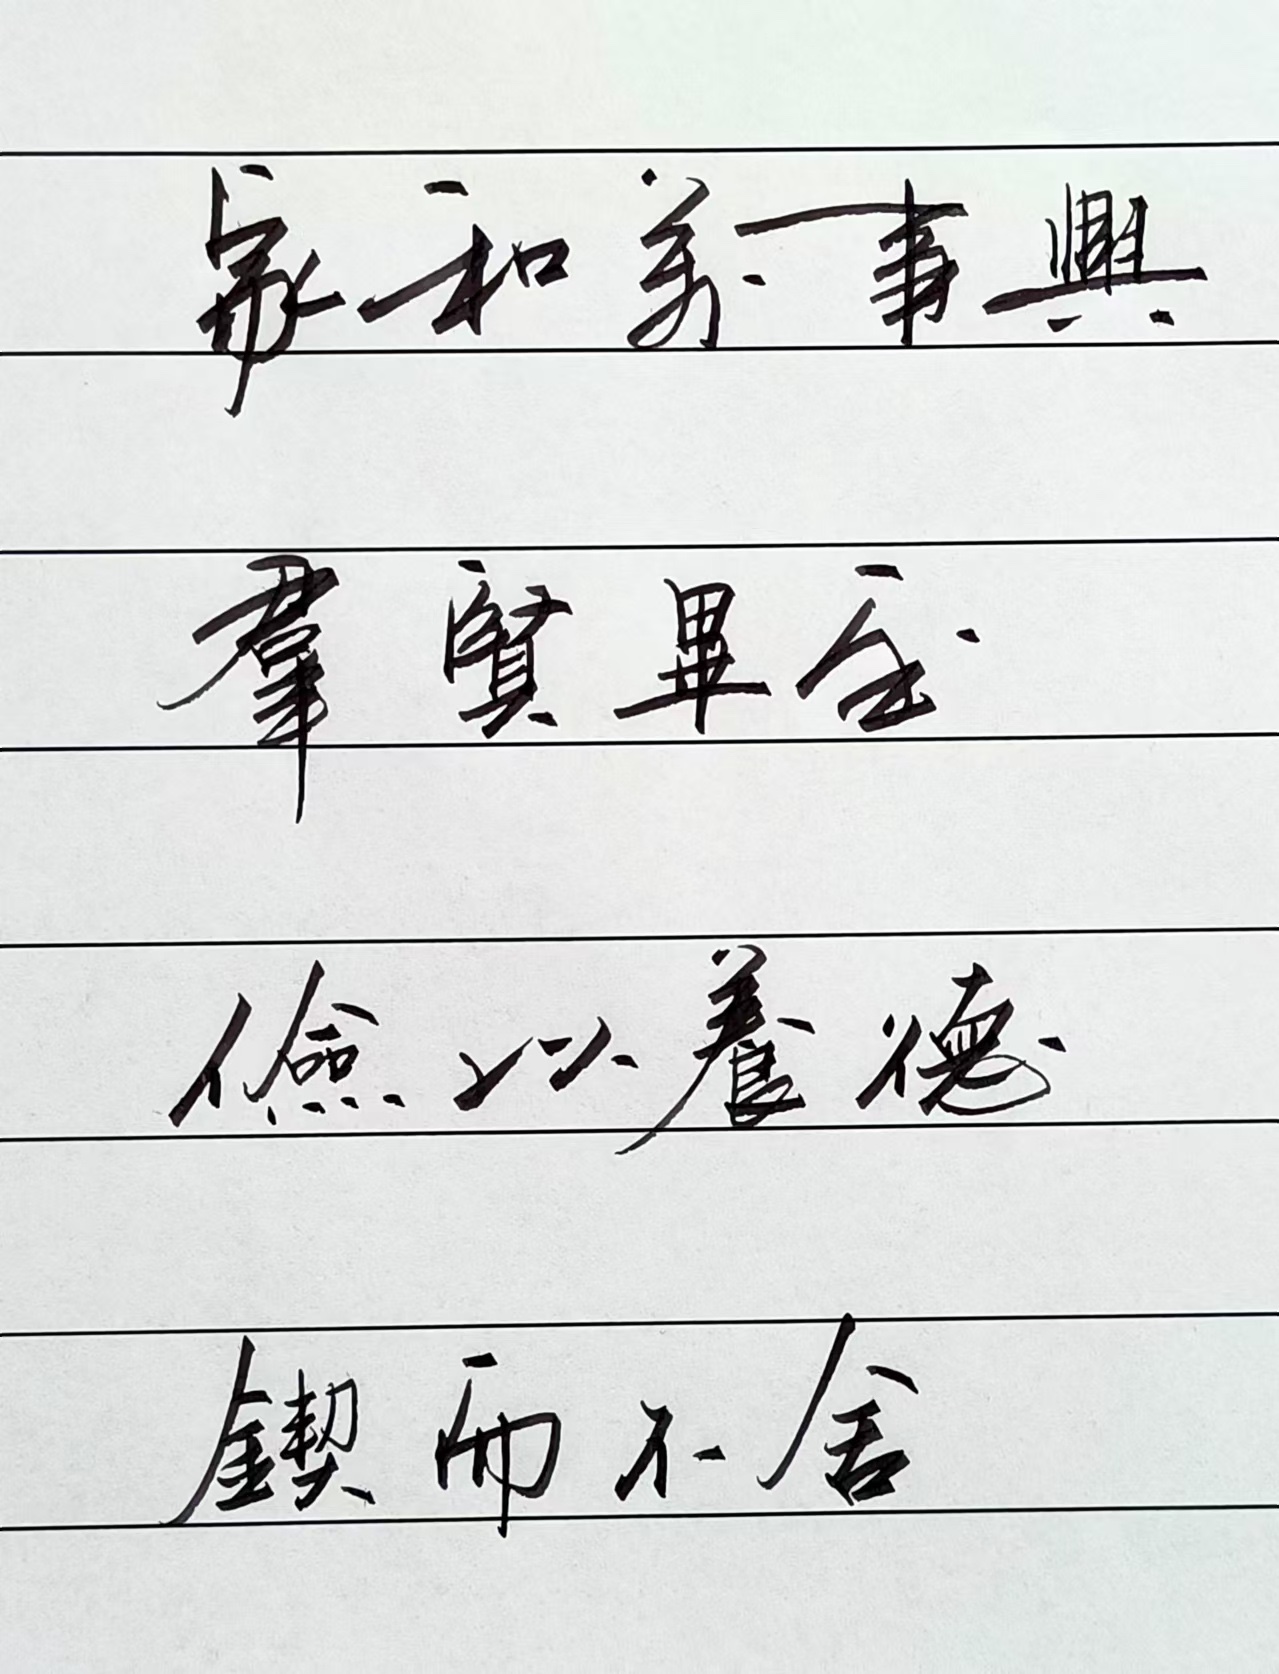 家和萬事興
羣賢畢至
儉以養德
鍥而不舍